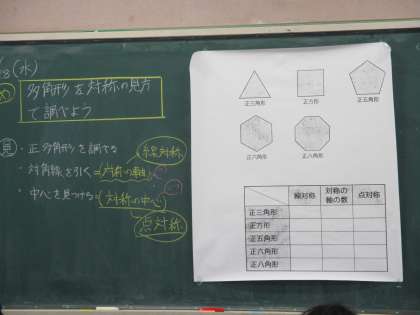 (水)
め
多角形を対称の見方
で調べよう
見
・正多角形を調べる
線対称
・対角線を引く=対称の軸
・中心を見つける=対称の中心
点対称
正三角形
正方形
正五角形
正六角形
正八角形
線対称
対称の
軸の数
点対称
正三角形
正方形
正五角形
正六角形
正八角形